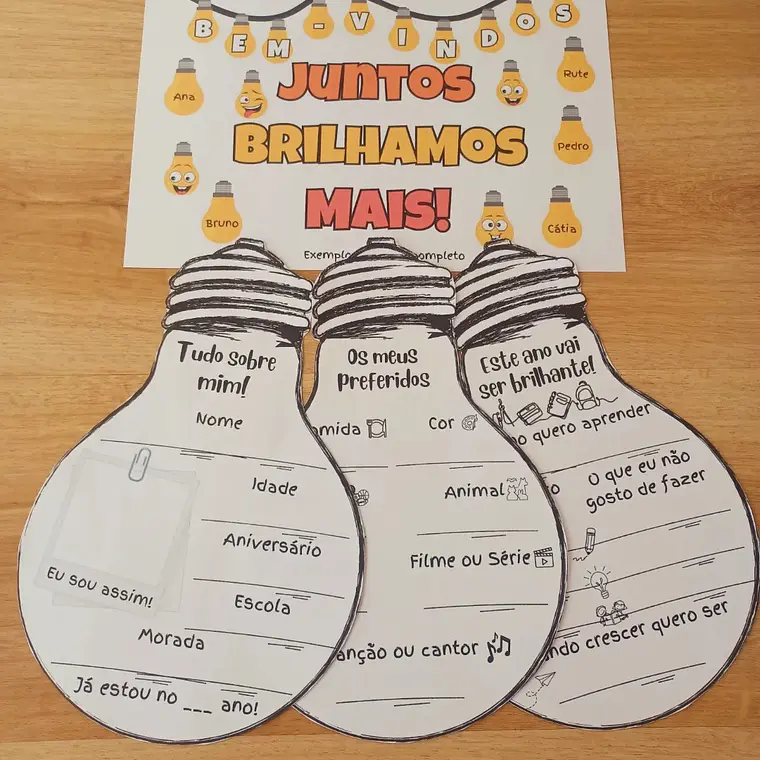 BEM-VINDOS
JUNTOS
BRILHAMOS
MAIS!
Ana
Rute
Pedro
Bruno
Cátia
Tudo sobre
mim!
Nome
Idade
Aniversário
Eu sou assim!
Escola
Morada
Já estou no ___ ano!
Os meus
preferidos
Cor
Animal
Filme ou Série
ou cantor
Este ano vai
ser brilhante!
quero aprender
O que eu não
gosto de fazer
crescer quero ser